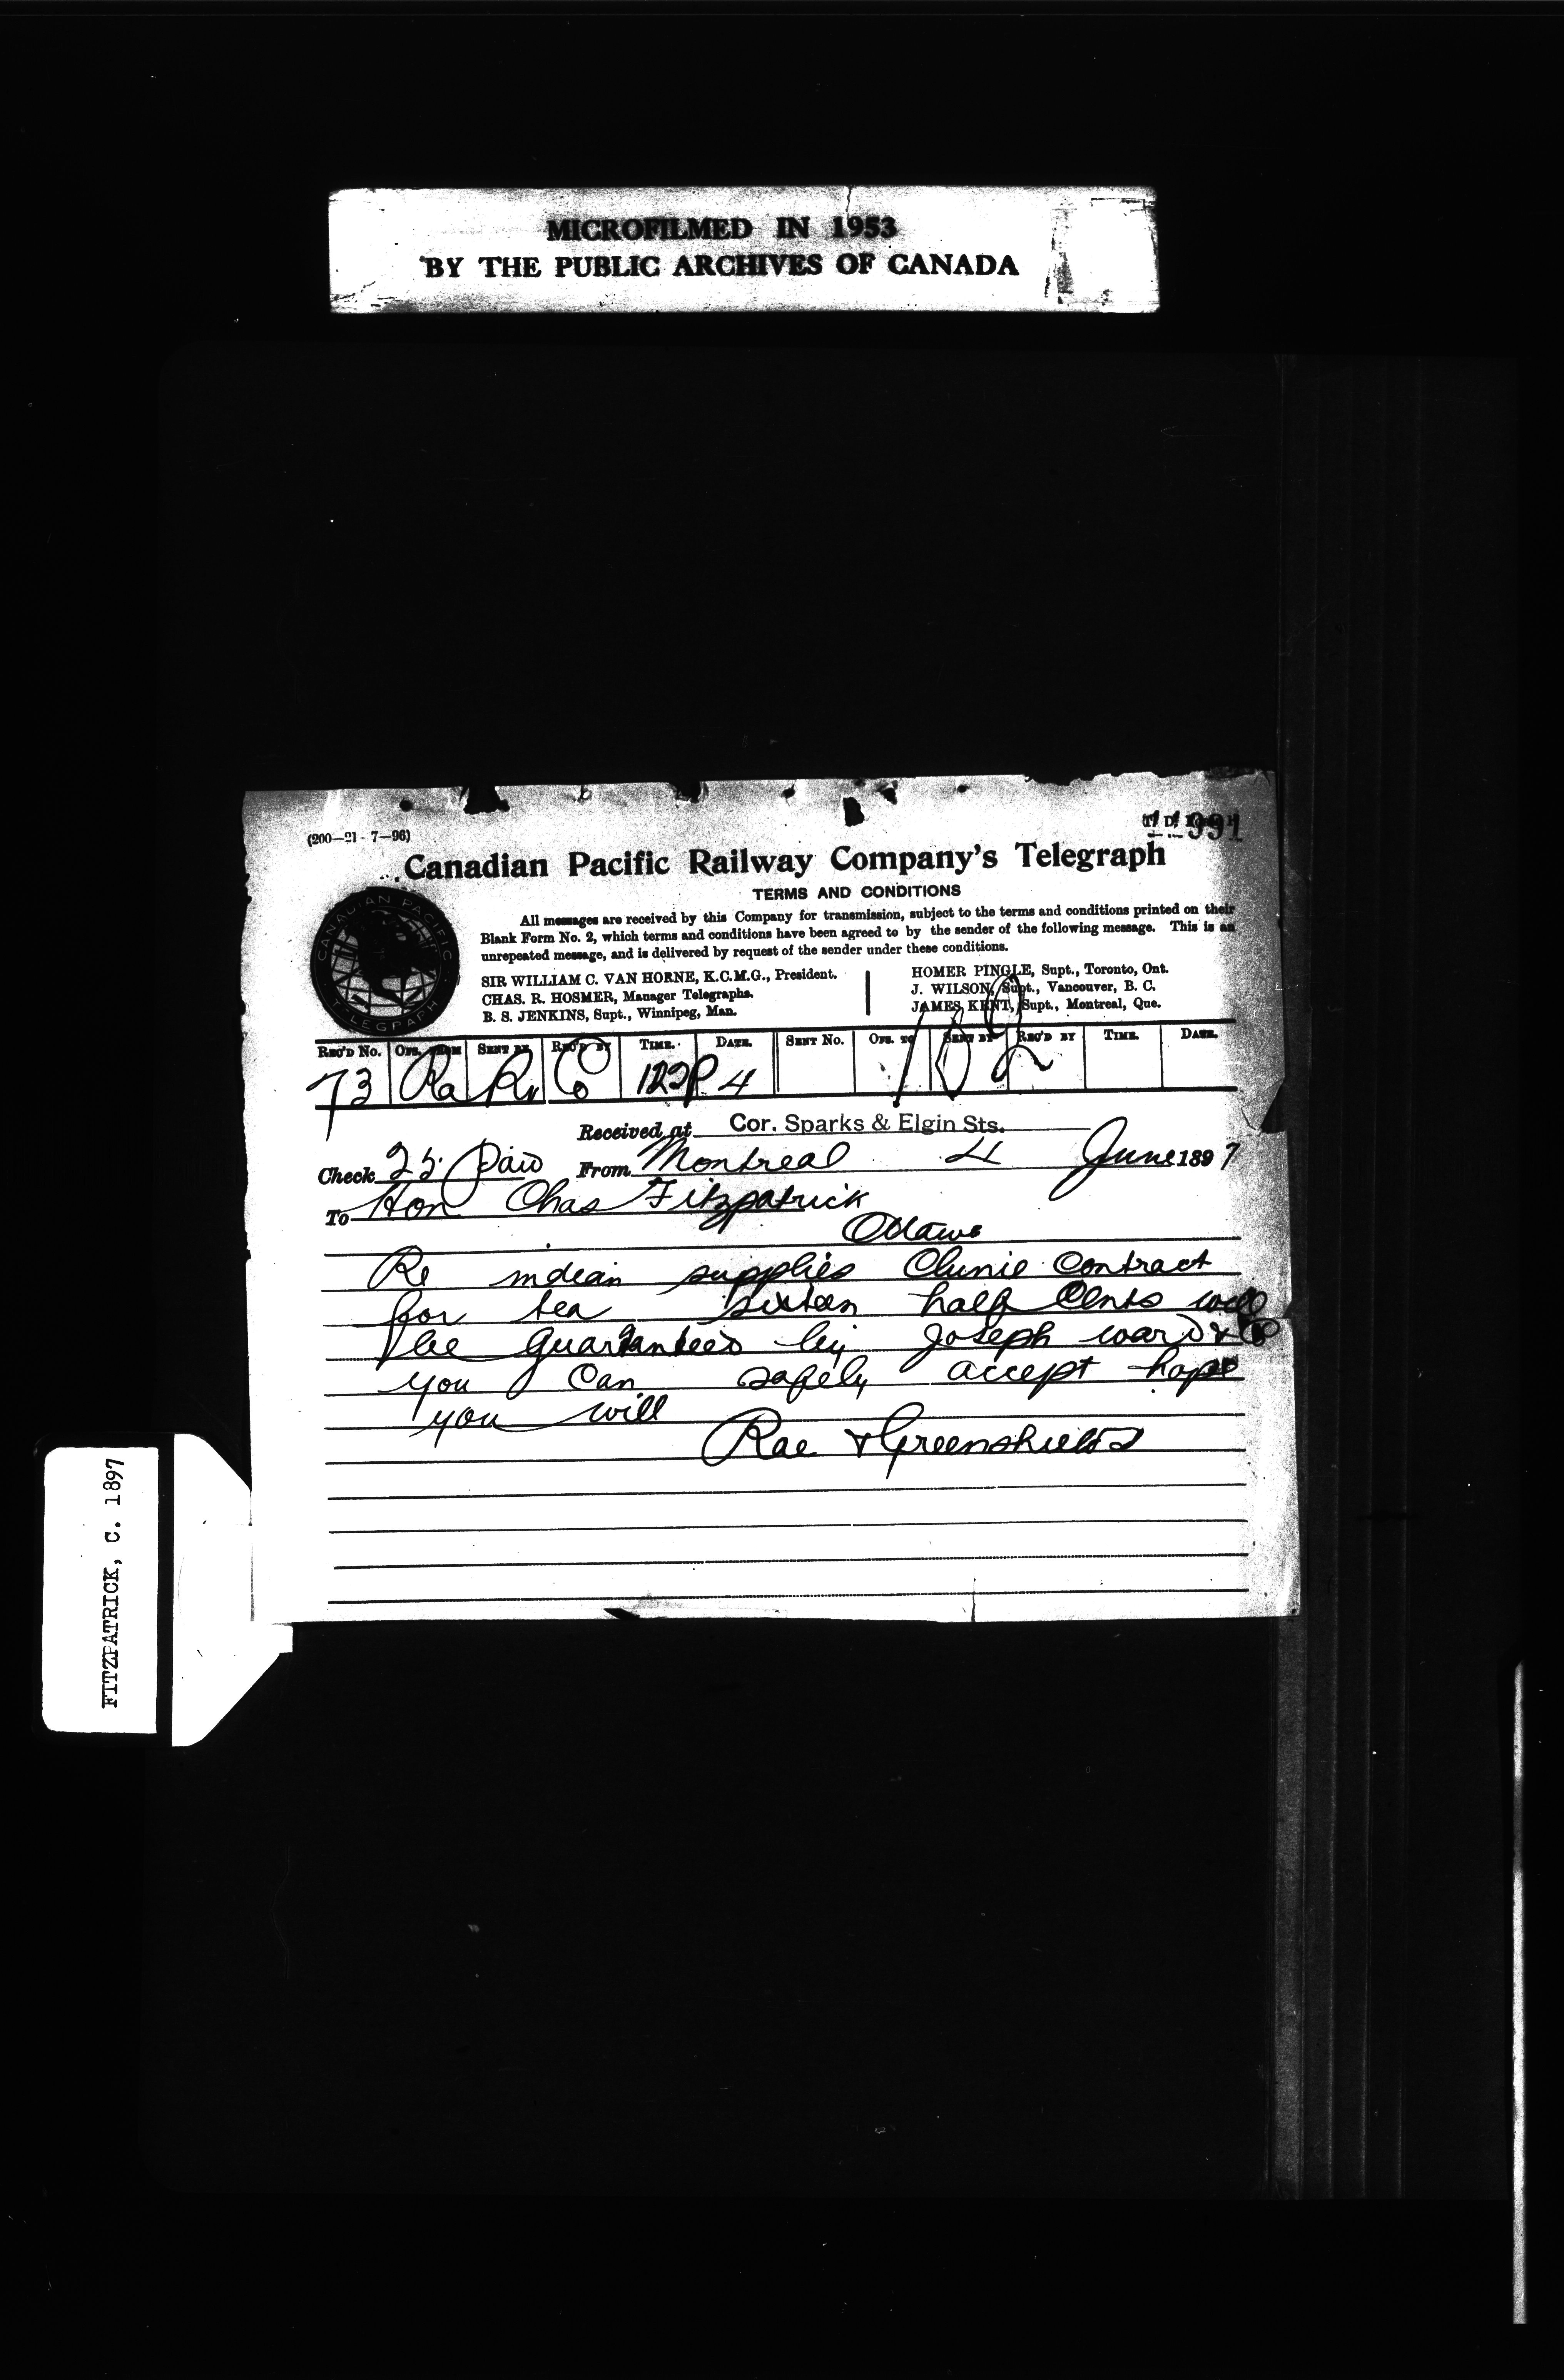 MICROFILMED IN 1953
BY THE PUBLIC ARCHIVES OF CANADA
(200—21-7—96)
Canadian Pacific Railway Company's Telegraph
TERMS AND CONDITIONS
All messages are received by this Company for transmission, subject to the terms and conditions printed on their
Blank Form No. 2, which terms and conditions have been agreed to by the sender of the following message. This is an
unrepeated message, and is delivered by request of the sender under these conditions.
CANADIAN PACIFIC
TELEGRAPH
SIR WILLIAM C. VAN HORNE, K.C.M.G., President.
CHAS. R. HOSMER, Manager Telegraphs.
B. S. JENKINS, Supt., Winnipeg, Man.
HOMER PINGLE, Supt., Toronto, Ont.
J. WILSON, Supt., Vancouver, B. C.
JAMES KENT, Supt., Montreal, Que.
REC'D NO. OFS. FROM SENT BY REC'D BY TIME. DATE. SENT NO. OFS. TO SENT BY REC'D BY TIME. DATE.
73 Ra 122P 4
Received at Cor. Sparks & Elgin Sts.
Check 25 Paid From Montreal 4 June 1897
To Hon Chas Fitzpatrick
Ottawa
Re indian supplies Clunie Contract
for tea sixteen half Cents will
be guaranteed by Joseph ward & Co
you can safely accept hope
you will
Rae & Greenshields
FITZPATRICK, C. 1897